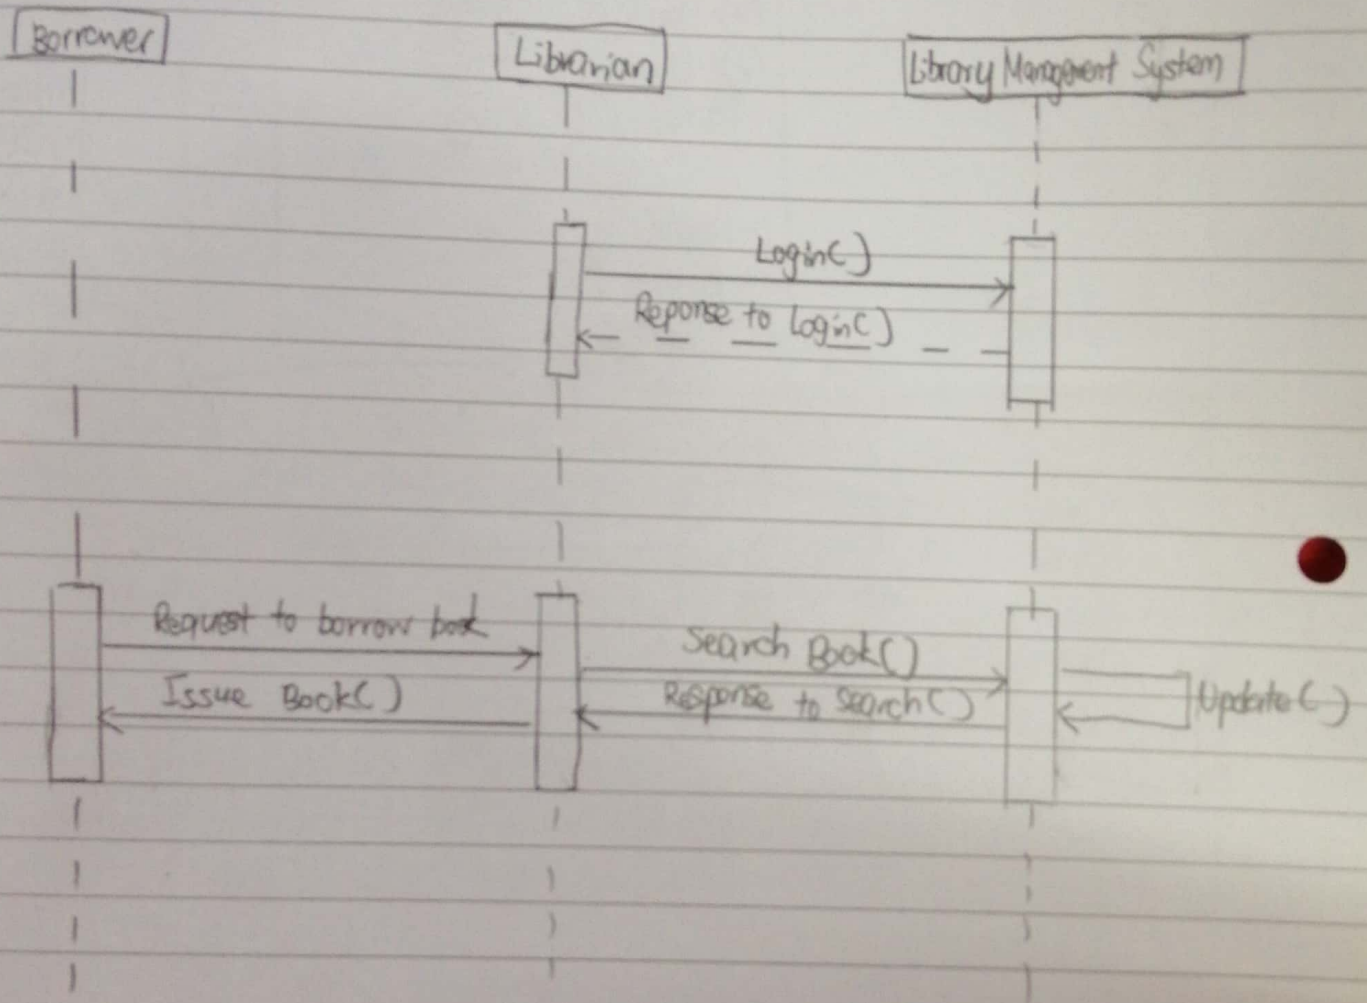 Borrower
Librarian
Library Managment System
Login()
Reponse to Login()
Request to borrow book
Search Book()
Issue Book()
Response to Search()
Update()